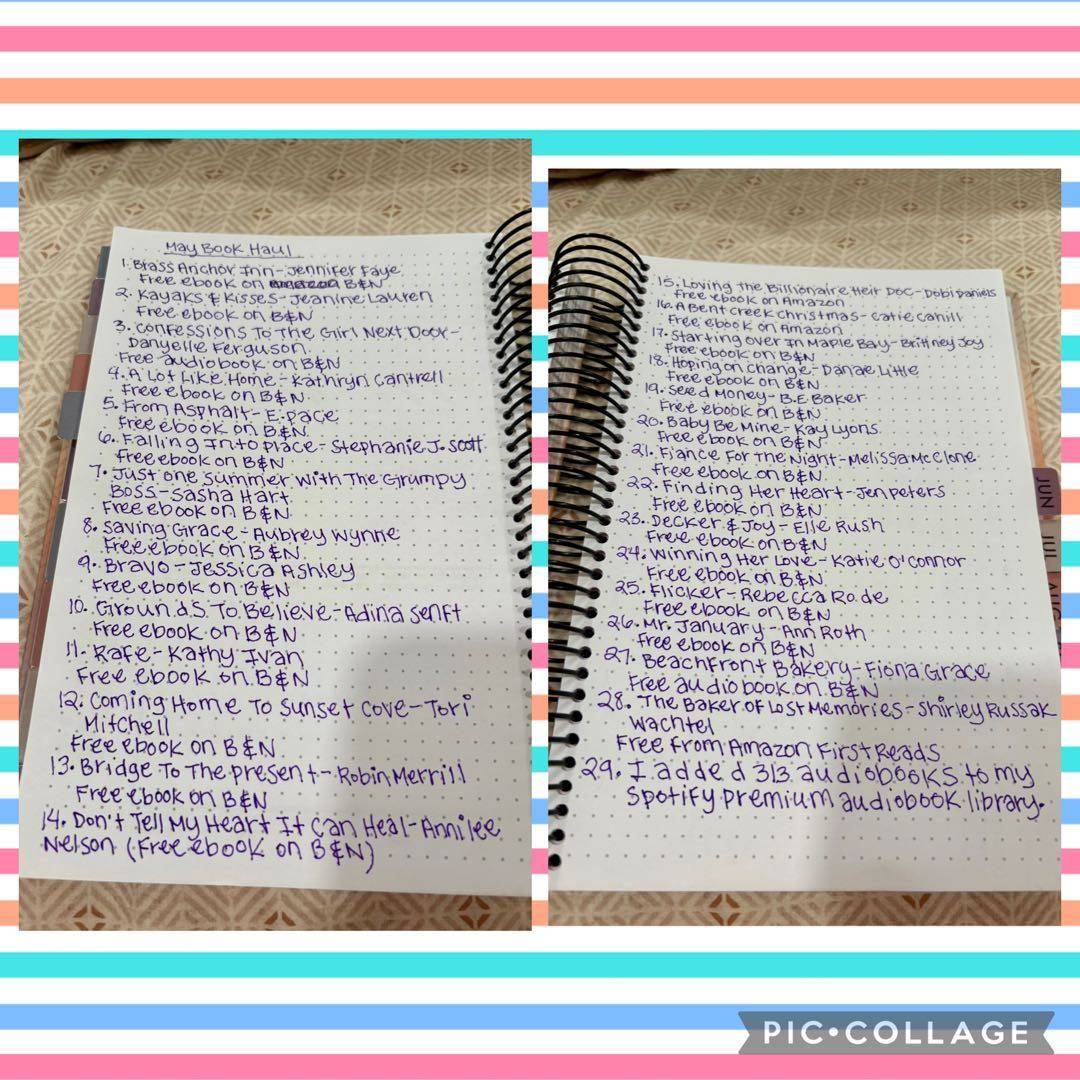 May Book Haul
1. Brass Anchor Inn - Jennifer Faye
Free ebook on B&N
2. Kayaks & Kisses - Jeanine Lauren
Free ebook on B&N
3. Confessions To The Girl Next Door -
Danyelle Ferguson
Free audiobook on B&N
4. A Lot Like Home - Kathryn Cantrell
Free ebook on B&N
5. From Asphalt - E. Pace
Free ebook on B&N
6. Falling Into Place - Stephanie J. Scott
Free ebook on B&N
7. Just One Summer With The Grumpy
Boss - Sasha Hart
Free ebook on B&N
8. Saving Grace - Aubrey Wynne
Free ebook on B&N
9. Bravo - Jessica Ashley
Free ebook on B&N
10. Grounds To Believe - Adina Senft
Free ebook on B&N
11. Rafe - Kathy Ivan
Free ebook on B&N
12. Coming Home To Sunset Cove - Tori
Mitchell
Free ebook on B&N
13. Bridge To The Present - Robin Merrill
Free ebook on B&N
14. Don't Tell My Heart It Can Heal - Annilee
Nelson (Free ebook on B&N)
15. Loving The Billionaire Heir Doc - Dobi Daniels
Free ebook on Amazon
16. A Bent Creek Christmas - Catie Cahill
Free ebook on Amazon
17. Starting Over In Maple Bay - Brittney Joy
Free ebook on B&N
18. Hoping on Change - Danae Little
Free ebook on B&N
19. Seed Money - B.E. Baker
Free ebook on B&N
20. Baby Be Mine - Kay Lyons
Free ebook on B&N
21. Fiance For The Night - Melissa McClone
Free ebook on B&N
22. Finding Her Heart - Jen Peters
Free ebook on B&N
23. Decker & Joy - Elle Rush
Free ebook on B&N
24. Winning Her Love - Katie O'Connor
Free ebook on B&N
25. Flicker - Rebecca Rode
Free ebook on B&N
26. Mr. January - Ann Roth
Free ebook on B&N
27. Beachfront Bakery - Fiona Grace
Free audiobook on B&N
28. The Baker of Lost Memories - Shirley Russak
Wachtel
Free From Amazon First Reads
29. I added 313 audiobooks to my
Spotify Premium audiobook library.
JUN
JUL
AUG
PIC•COLLAGE